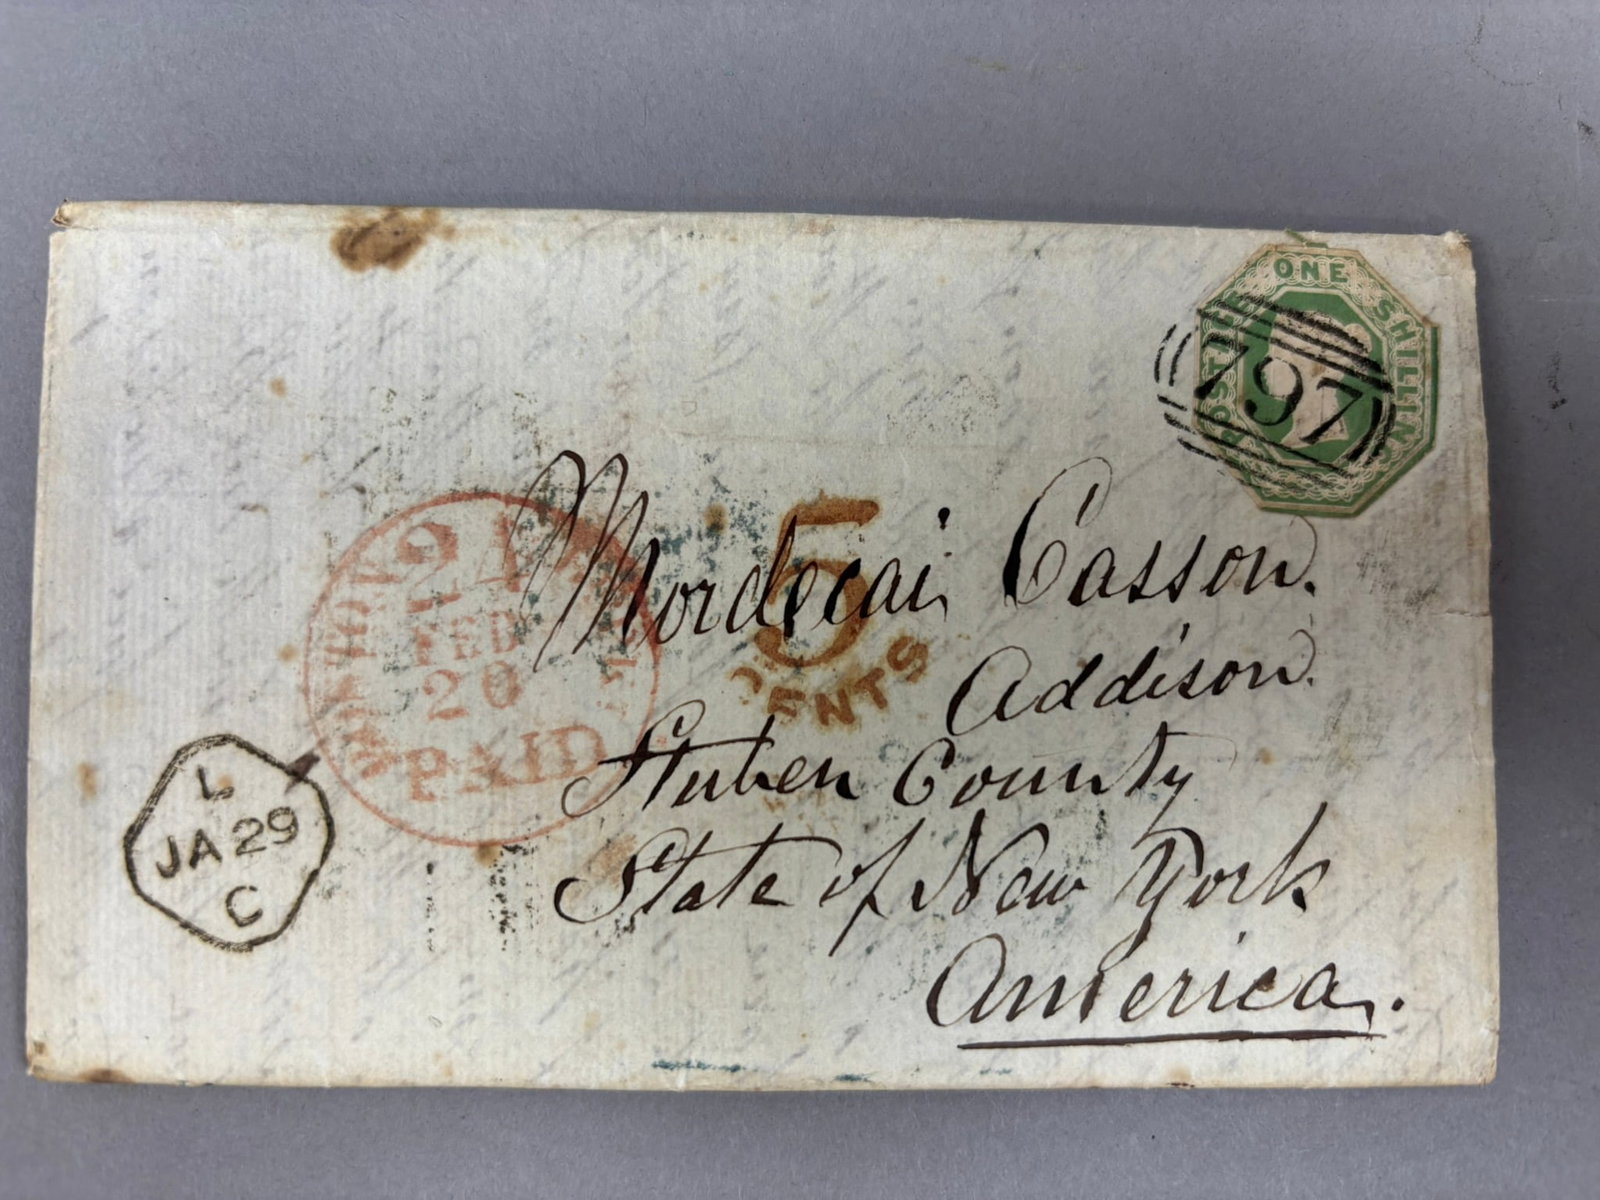 POSTAGE ONE SHILLING
797
Mordecai Casson.
Addison.
Stuben County
State of New York
America.
5
CENTS
NEW YORK
24
FEB
20
PAID
L
JA 29
C